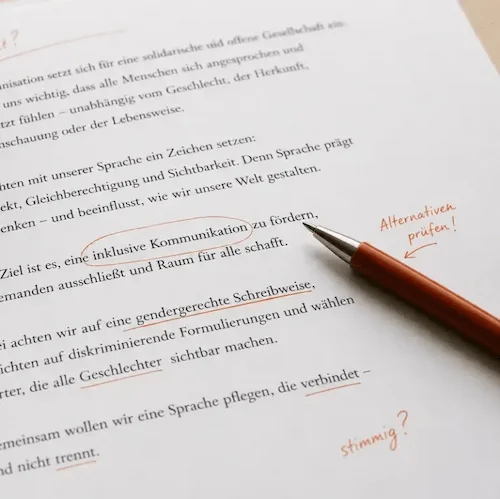 t?
nisation setzt sich für eine solidarische uid offene Gesellschaft ein.
uns wichtig, dass alle Menschen sich angesprochen und
tzt fühlen – unabhängig vom Geschlecht, der Herkunft,
nschauung oder der Lebensweise.
hten mit unserer Sprache ein Zeichen setzen:
ekt, Gleichberechtigung und Sichtbarkeit. Denn Sprache prägt
enken – und beeinflusst, wie wir unsere Welt gestalten.
Ziel ist es, eine inklusive Kommunikation zu fördern,
emanden ausschließt und Raum für alle schafft.
Alternativen
prüfen!
ei achten wir auf eine gendergerechte Schreibweise,
ichten auf diskriminierende Formulierungen und wählen
rter, die alle Geschlechter sichtbar machen.
emeinsam wollen wir eine Sprache pflegen, die verbindet –
nd nicht trennt.
stimmig?